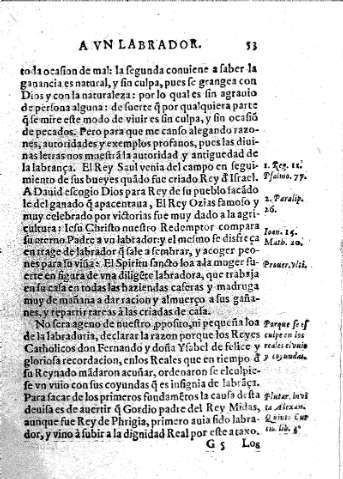 A VN LABRADOR. 53
toda ocasion de mal: la segunda conuiene a saber la
ganancia es natural, y sin culpa, pues se grangea con
Dios y con la naturaleza: por lo qual es sin agrauio
de persona alguna: de suerte q̃ por qualquiera parte
q̃ se mire este modo de viuir es sin culpa, y sin ocasiõ
de pecados. Pero para que me canso alegando razo-
nes, autoridades y exemplos profanos, pues las diui-
nas letras nos muestrã la autoridad y antiguedad de
la labrança. El Rey Saul venia del campo en segui-
miento de sus bueyes quãdo fue criado Rey d̃ Israel.
A Dauid escogio Dios para Rey de su pueblo facãdo
le del ganado q̃ apacentaua, El Rey Ozias famoso y
muy celebrado por victorias fue muy dado a la agri-
cultura: Iesu Christo nuestro Redemptor compara
su eterno Padre a vn labrador: y el mesmo se disfreça
en trage de labrador q̃ sale a sembrar, y acoger peo-
nes para su viña: El Spiritu sancto loa a la muger fu-
erte en figura de vna diligẽte labradora, que trabaja
en su casa en todas las haziendas caseras y madruga
muy de mañana a dar racion y almuerço a sus gaña-
nes, y repartir tareas à las criadas de casa.
No sera ageno de nuestro ꝓposito, ni pequeña loa
de la labraduria, declarar la razon porque los Reyes
Catholicos don Fernando y doña Ysabel de felice y
gloriosa recordacion, en los Reales que en tiempo d̃
su Reynado mãdaron acuñar, ordenaron se esculpie-
se vn yuio con sus coyundas q̃ es insignia de labrãça.
Para sacar de los primeros fundamẽtos la causa desta
deuisa es de auertir q̃ Gordio padre del Rey Midas,
aunque fue Rey de Phrigia, primero auia sido labra-
dor, y vino à subir a la dignidad Real por este acaxo.
G 5 Los
1. Reg. 11.
Psalmo. 77.
2. Paralip.
26.
Ioan. 15.
Math. 20.
Prouer. vlti.
Porque se es
culpe en los
reales el yuio
y coyundas.
Plutar. in vi
ta Alexan.
Quinto Cur
tiu. lib. 3